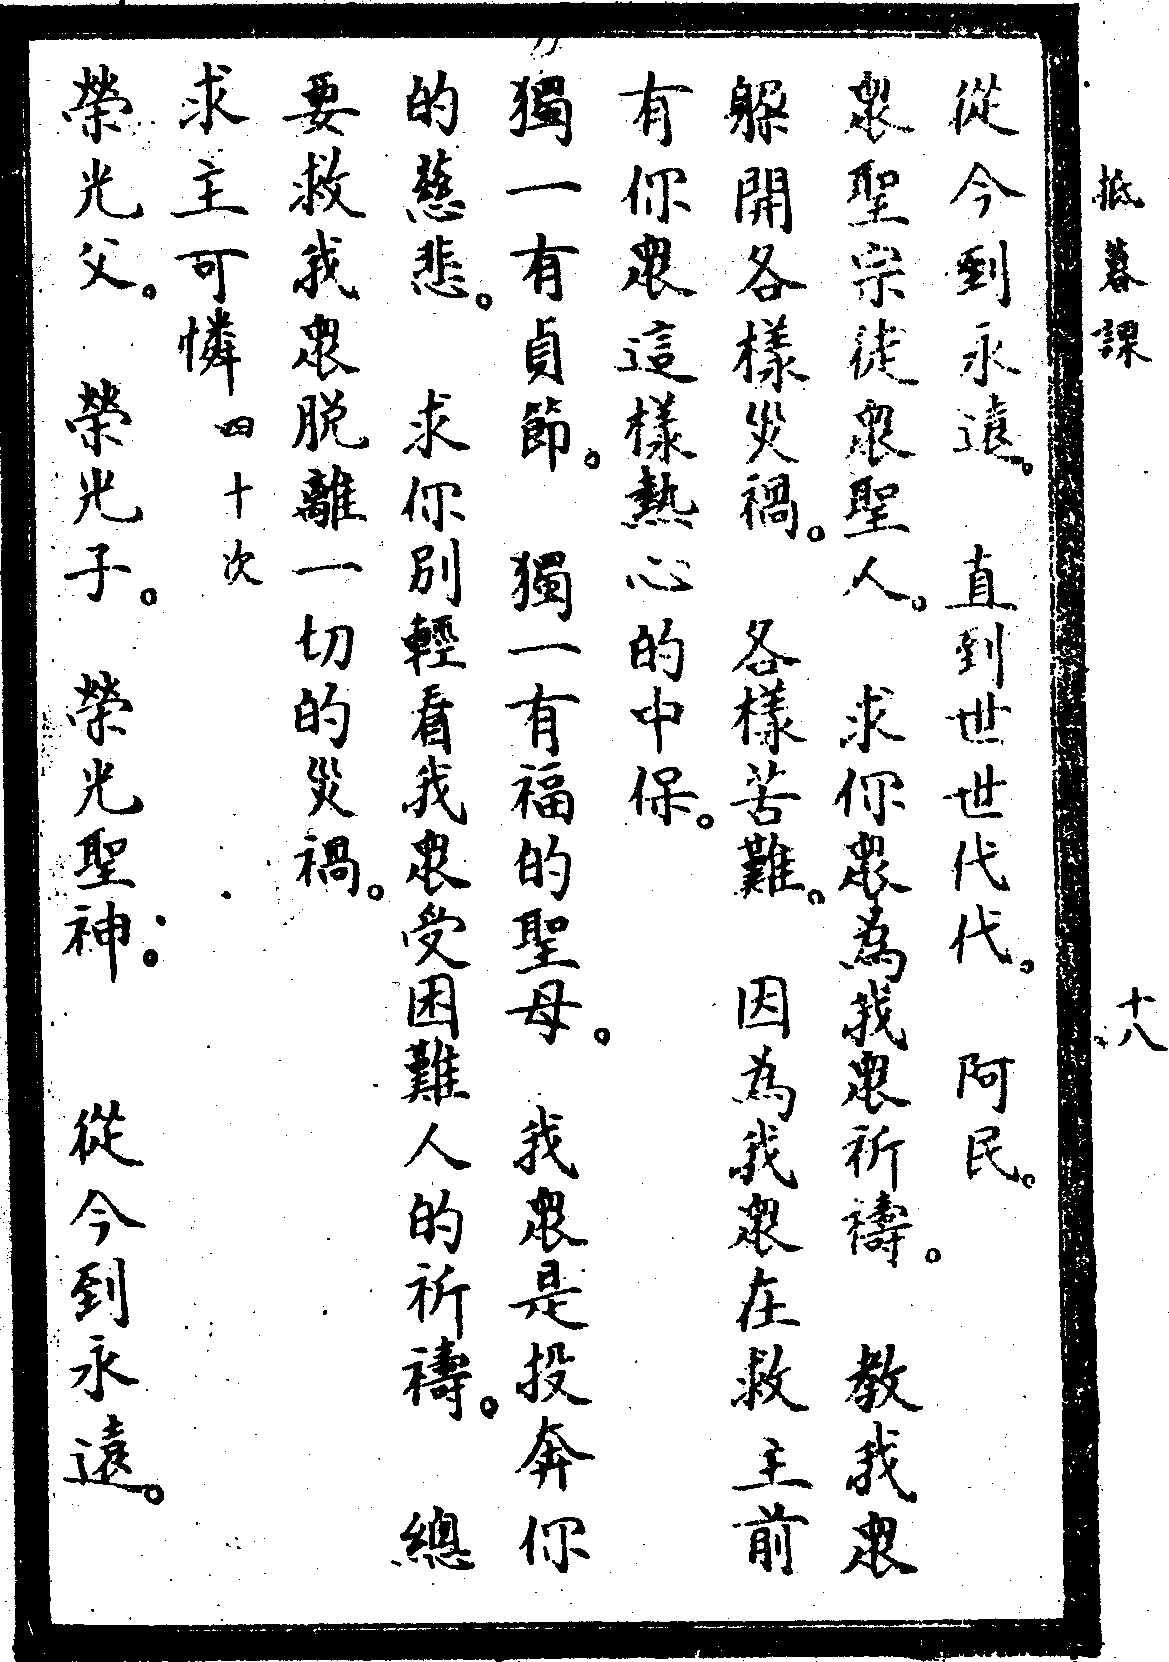 抵暮課
十八
從今到永遠。 直到世世代代。 阿民。
眾聖宗徒眾聖人。 求你眾為我眾祈禱。 教我眾
躲開各樣災禍。 各樣苦難。 因為我眾在救主前
有你眾這樣熱心的中保。
獨一有貞節。 獨一有福的聖母。 我眾是投奔你
的慈悲。 求你別輕看我眾受困難人的祈禱。 總
要救我眾脫離一切的災禍。
求主可憐四十次
榮光父。 榮光子。 榮光聖神。 從今到永遠。